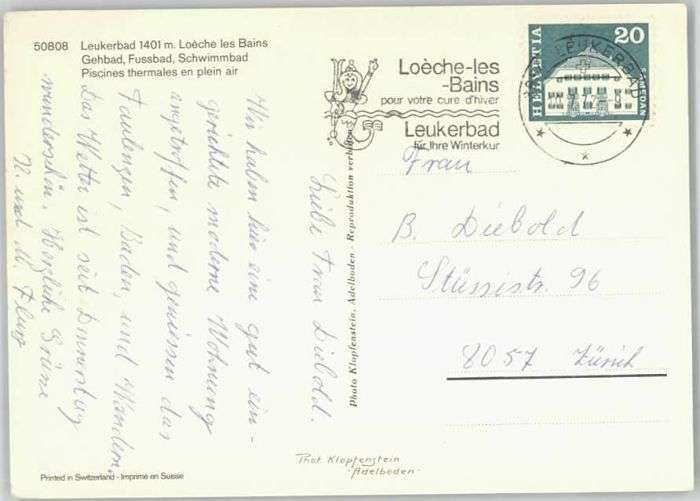 50808 Leukerbad 1401 m. Loèche les Bains
Gehbad, Fussbad, Schwimmbad
Piscines thermales en plein air
Liebe Frau Diebold.
Wir haben hier eine gut ein-
gerichtete moderne Wohnung
angetroffen, und geniessen das
Faulenzen, Baden, und Wandern.
Das Wetter ist seit Donnerstag
wunderschön. Herzliche Grüsse
H. und M. Flury
Printed in Switzerland - Imprimé en Suisse
Photo Klopfenstein, Adelboden. Reproduktion verboten
Loèche-les
-Bains
pour votre cure d'hiver
Leukerbad
für Ihre Winterkur
LEUKERBAD
HELVETIA
20
Frau
B. Diebold
Stüssistr. 96
8057 Zürich
Phot Klopfenstein
Adelboden